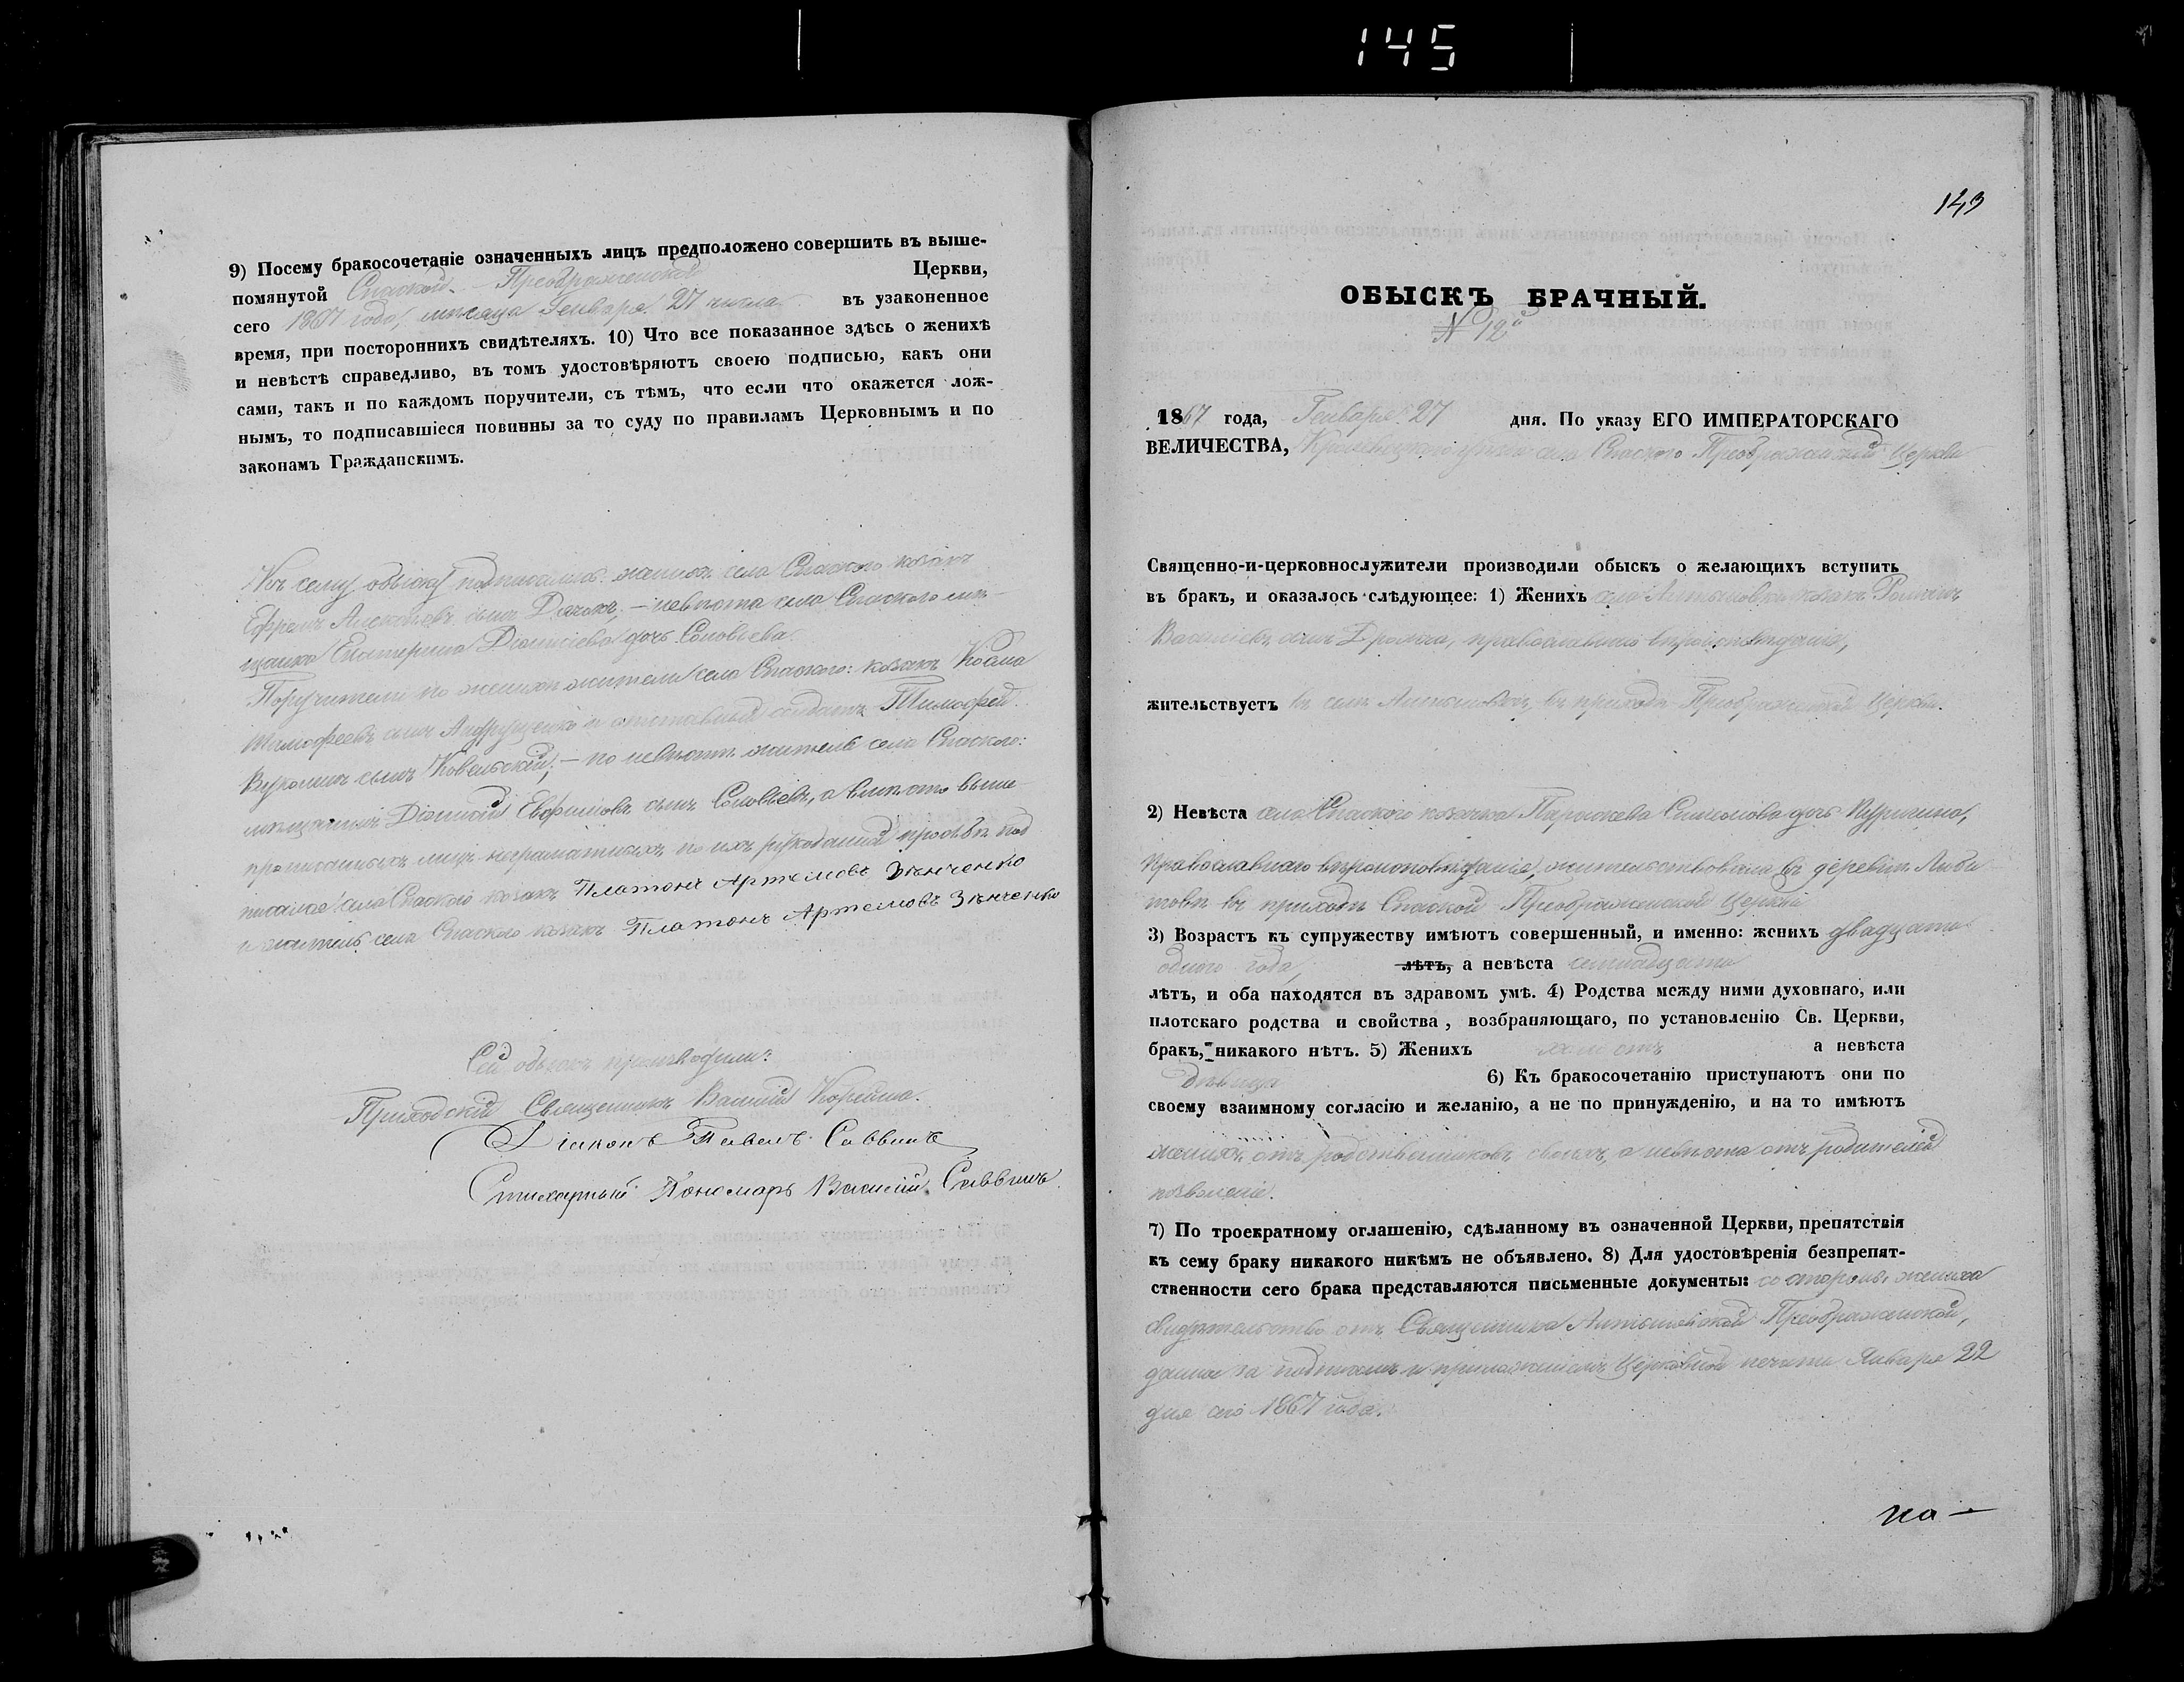 145
9) Посему бракосочетаніе означенныхъ лицъ предположено совершить въ выше-
помянутой Спаской - Преображенской Церкви,
сего 1867 года, месяца Генваря 27 числа въ узаконенное
время, при постороннихъ свидѣтеляхъ. 10) Что все показанное здѣсь о женихѣ
и невѣстѣ справедливо, въ томъ удостовѣряютъ своею подписью, какъ они
сами, такъ и по каждомъ поручители, съ тѣмъ, что если что окажется лож-
нымъ, то подписавшіеся повинны за то суду по правиламъ Церковнымъ и по
законамъ Гражданскимъ.
Къ сему обыску подписались: женихъ села Спаского козакъ
Ефремъ Алексѣевъ сынъ Дячокъ, - невѣста села Спаского мѣ-
щанка Екатерина Діонисіева дочь Соловьева.
Поручители по женихѣ жители села Спаского: козакъ Косма
Тимофеевъ сынъ Андрущенко и отставный солдатъ Тимофей
сынъ Ковельскій; - по невѣстѣ житель села Спаского:
мѣщанинъ Діонисій Евфимовъ сынъ Соловьевъ, а вмѣсто выше
прописанныхъ лицъ неграматныхъ по ихъ рукоданной прозьбѣ под
писался села Спаского козакъ Платонъ Артемовъ Зѣнченко
и житель села Спаского козакъ Платонъ Артемовъ Зѣнченко
Сей обыскъ производили:
Приходскій Священникъ Василій Корейша.
Діаконъ Павелъ Саввинъ
Стихарный Пономарь Василій Саввинъ.
143
ОБЫСКЪ БРАЧНЫЙ.
№ 12й
1867 года, Генваря 27 дня. По указу ЕГО ИМПЕРАТОРСКАГО
ВЕЛИЧЕСТВА, Кролевецкого уезда села Спаского Преображенской Церкви
Священно-и-церковнослужители производили обыскъ о желающихъ вступить
въ бракъ, и оказалось слѣдующее: 1) Женихъ села козакъ
сынъ православнаго вѣроисповѣданія,
жительствуетъ въ селѣ въ приходѣ Преображенской Церкви.
2) Невѣста села Спаского козачка Параскева Симеонова дочь
Православнаго вѣроисповѣданія, жительствовала въ деревнѣ Люби
товѣ въ приходѣ Спаской Преображенской Церкви
3) Возрастъ къ супружеству имѣютъ совершенный, и именно: женихъ двадцати
одного года, лѣтъ, а невѣста семнадцати
лѣтъ, и оба находятся въ здравомъ умѣ. 4) Родства между ними духовнаго, или
плотскаго родства и свойства, возбраняющаго, по установленію Св. Церкви,
бракъ, никакого нѣтъ. 5) Женихъ холостъ а невѣста
дѣвица 6) Къ бракосочетанію приступаютъ они по
своему взаимному согласію и желанію, а не по принужденію, и на то имѣютъ
женихъ отъ родственниковъ своихъ, а невѣста отъ родителей
позволеніе.
7) По троекратному оглашенію, сдѣланному въ означенной Церкви, препятствія
къ сему браку никакого никѣмъ не объявлено. 8) Для удостовѣренія безпрепят-
ственности сего брака представляются письменные документы: со стороны жениха
свидѣтельство отъ Священника Преображенской,
данное за подписомъ и приложеніемъ Церковной печати Января 22
дня сего 1867 года.
по-